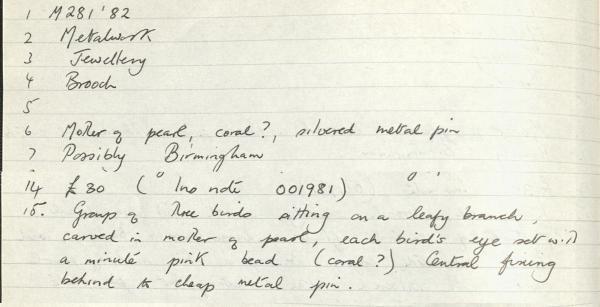 1 M281'82
2 Metalwork
3 Jewellery
4 Brooch
5
6 Mother of pearl, coral?, silvered metal pin
7 Possibly Birmingham
14 £30 ( " Ins note 001981) " "
15. Group of three birds sitting on a leafy branch,
carved in mother of pearl, each bird's eye set with
a minute pink bead (coral?) Central fixing
behind to cheap metal pin.